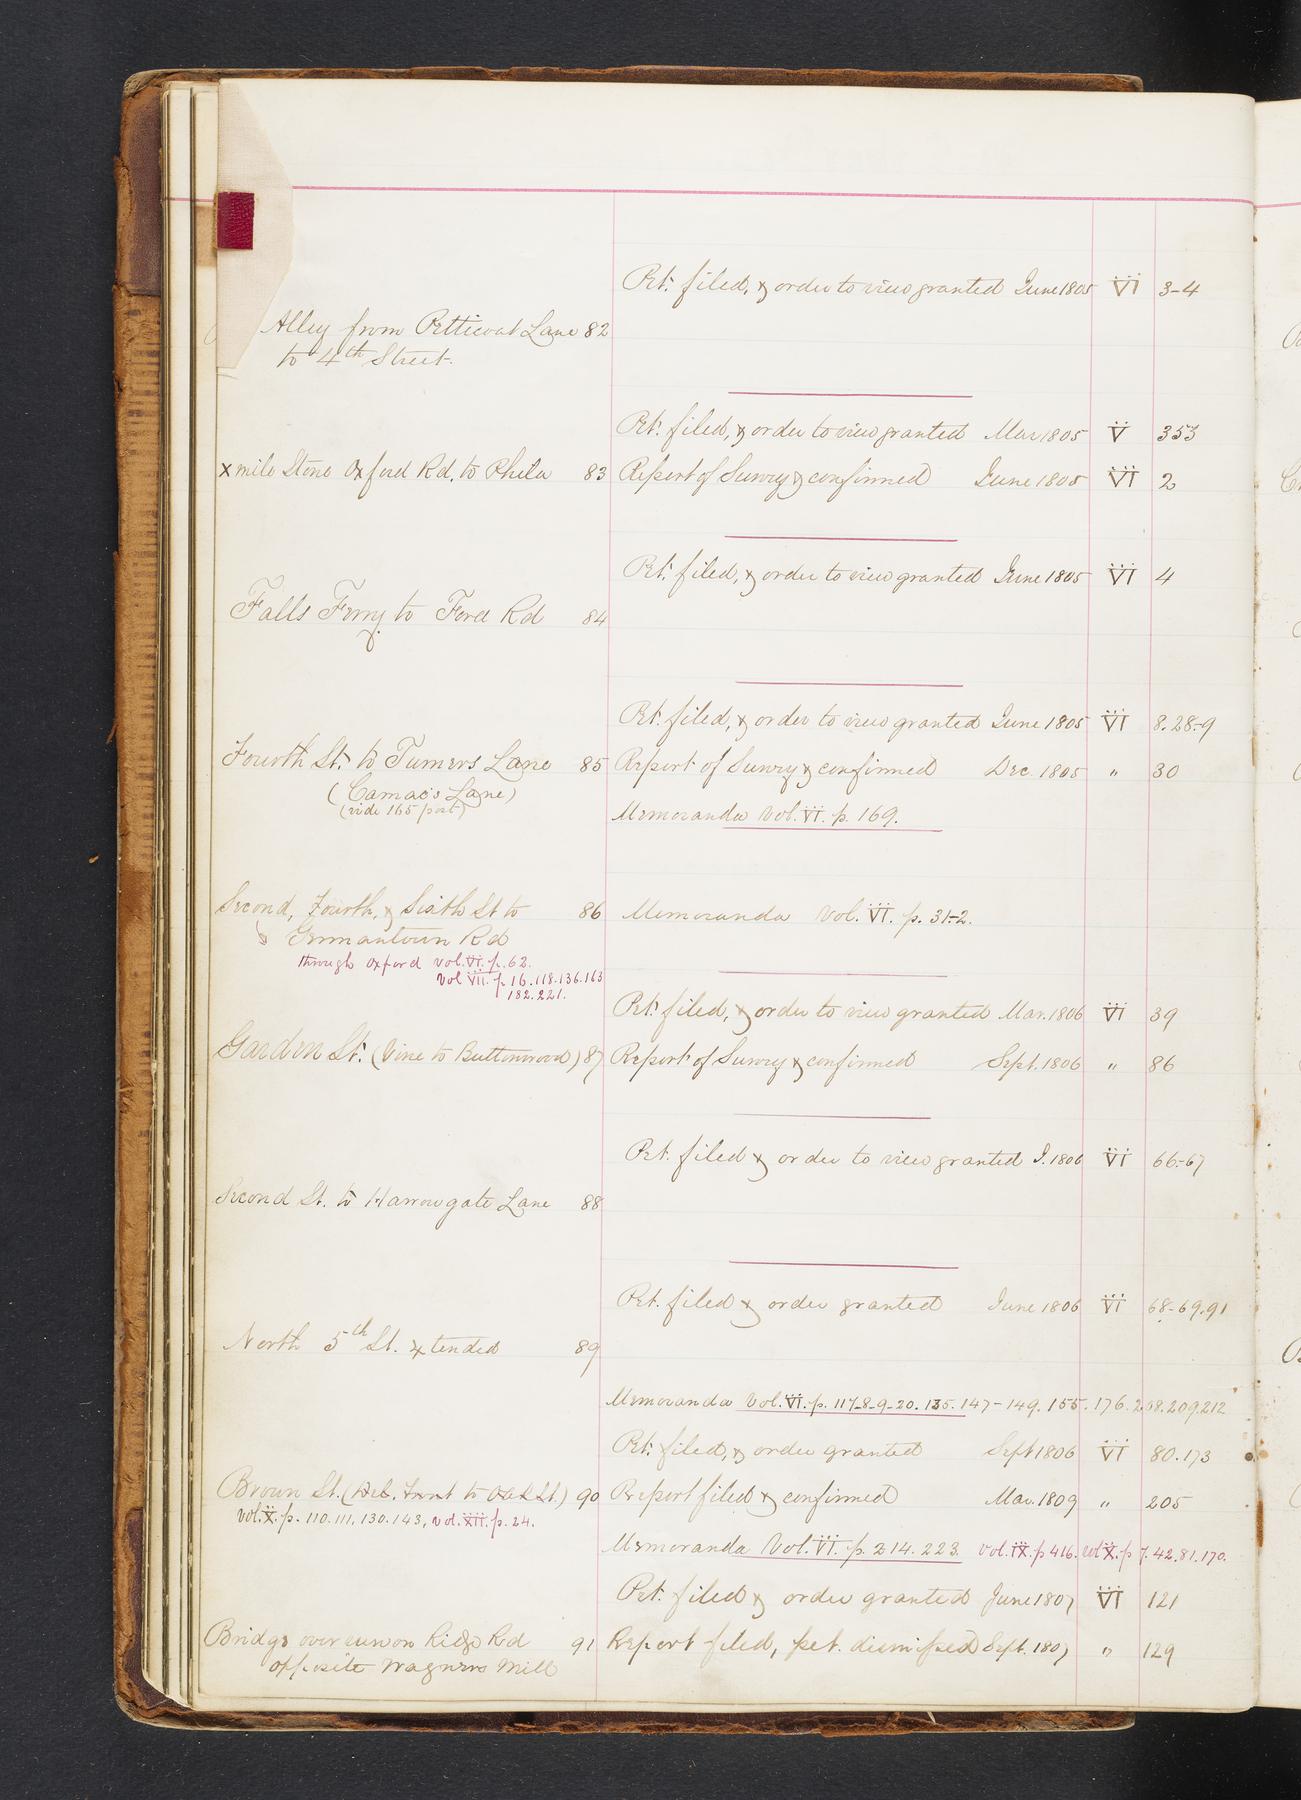 Pet. filed, & order to view granted June 1805 VI 3-4
Alley from Petticoat Lane 82
to 4th Street.
Pet. filed, & order to view granted Mar 1805 V 353
x mile Stone Oxford Rd. to Phila 83 Report of Survey & confirmed June 1805 VI 2
Pet. filed, & order to view granted June 1805 VI 4
Falls Ferry to Ford Rd 84
Pet. filed, & order to view granted June 1805 VI 8.28-9
Fourth St. to Turners Lane 85 Report of Survey & confirmed Dec. 1805 " 30
(Camac's Lane)
(vide 165 post)
Memoranda Vol. VI. p. 169.
Second, Fourth, & Sixth St to 86 Memoranda Vol. VI. p. 31-2.
Germantown Rd
through Oxford vol. VI. p. 62.
vol VII. p 16.118.136.163
182.221.
Pet. filed, & order to view granted Mar. 1806 VI 39
Garden St. (Vine to Buttonwood) 87 Report of Survey & confirmed Sept. 1806 " 86
Pet. filed & order to view granted J. 1806 VI 66-67
Second St. to Harrowgate Lane 88
Pet. filed & order granted June 1806 VI 68-69.91
North 5th St. xtended 89
Memoranda Vol. VI. p. 117-8-9-20. 135. 147-149. 155. 176. 208.209.212
Pet. filed, & order granted Sept 1806 VI 80.173
Brown St. (Del. Front to Oak St.) 90 Report filed & confirmed Mar. 1809 " 205
vol. X. p. 110.111.130.143, vol. XII. p. 24.
Memoranda Vol. VI. p. 214. 223. vol. IX. p 416. vol X. p 7.42.81.170.
Pet. filed & order granted June 1807 VI 121
Bridge over run on Ridge Rd 91 Report filed, pet. dismissed Sept. 1807 " 129
opposite Wagners Mill